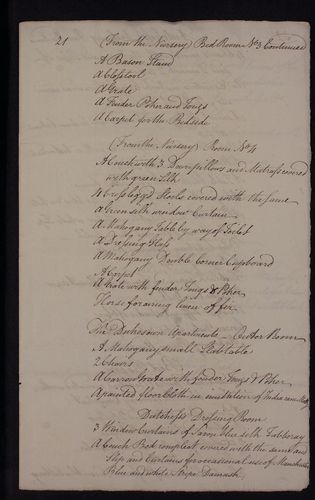 21 (From the Nursery) Bed Room No 3 Continued
A Bason Stand
A Closstool
A Grate
A Fender Poker and Tongs
A Carpet for the Bedside
(From the Nursery) Room No 4
A Couch with 3 Down pillows and Matrass covered
with green Silk
4 Cross legg'd Stools covered with the same
A Green silk window Curtain
A Mahogany Table by way of Toilet
A Dressing Glass
A Mahogany Double Corner Cupboard
A Carpet
A Grate with fender Tongs & Poker
Horse for airing linen of fir
The Dukes own Apartments Outer Room
A Mahogany small table
2 Chairs
A Carron Grate with fender Tongs & Poker
A painted floor Cloth in imitation of Indian
Dutchess Dressing Room
3 Window Curtains of blue silk Tabboray
A Couch Bed compleat covered with the same and
Slip and Curtains for occasional use of Manchester
Blue and white Stripe Damask